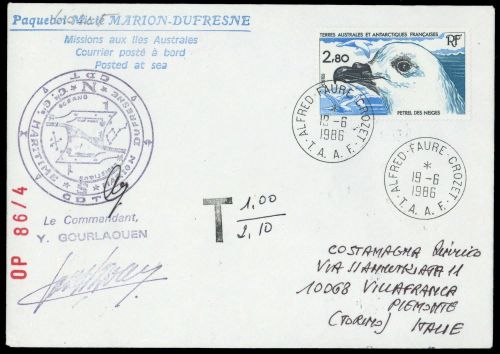 Paquebot Mixte MARION-DUFRESNE
Missions aux Iles Australes
Courrier posté à bord
Posted at sea
TERRES AUSTRALES ET ANTARCTIQUES FRANÇAISES
RF
2,80
PETREL DES NEIGES
ALFRED-FAURE-CROZET
*
12-6
1986
T.A.A.F.
ALFRED-FAURE-CROZET
*
19-6
1986
T.A.A.F.
N
S
MARITIME
Le Commandant,
Y. GOURLAOUEN
OP 86/4
T 1,00
2,10
COSTAMAGNA
VIA 11
10068 VILLAFRANCA
PIEMONTE
(TORINO) ITALIE